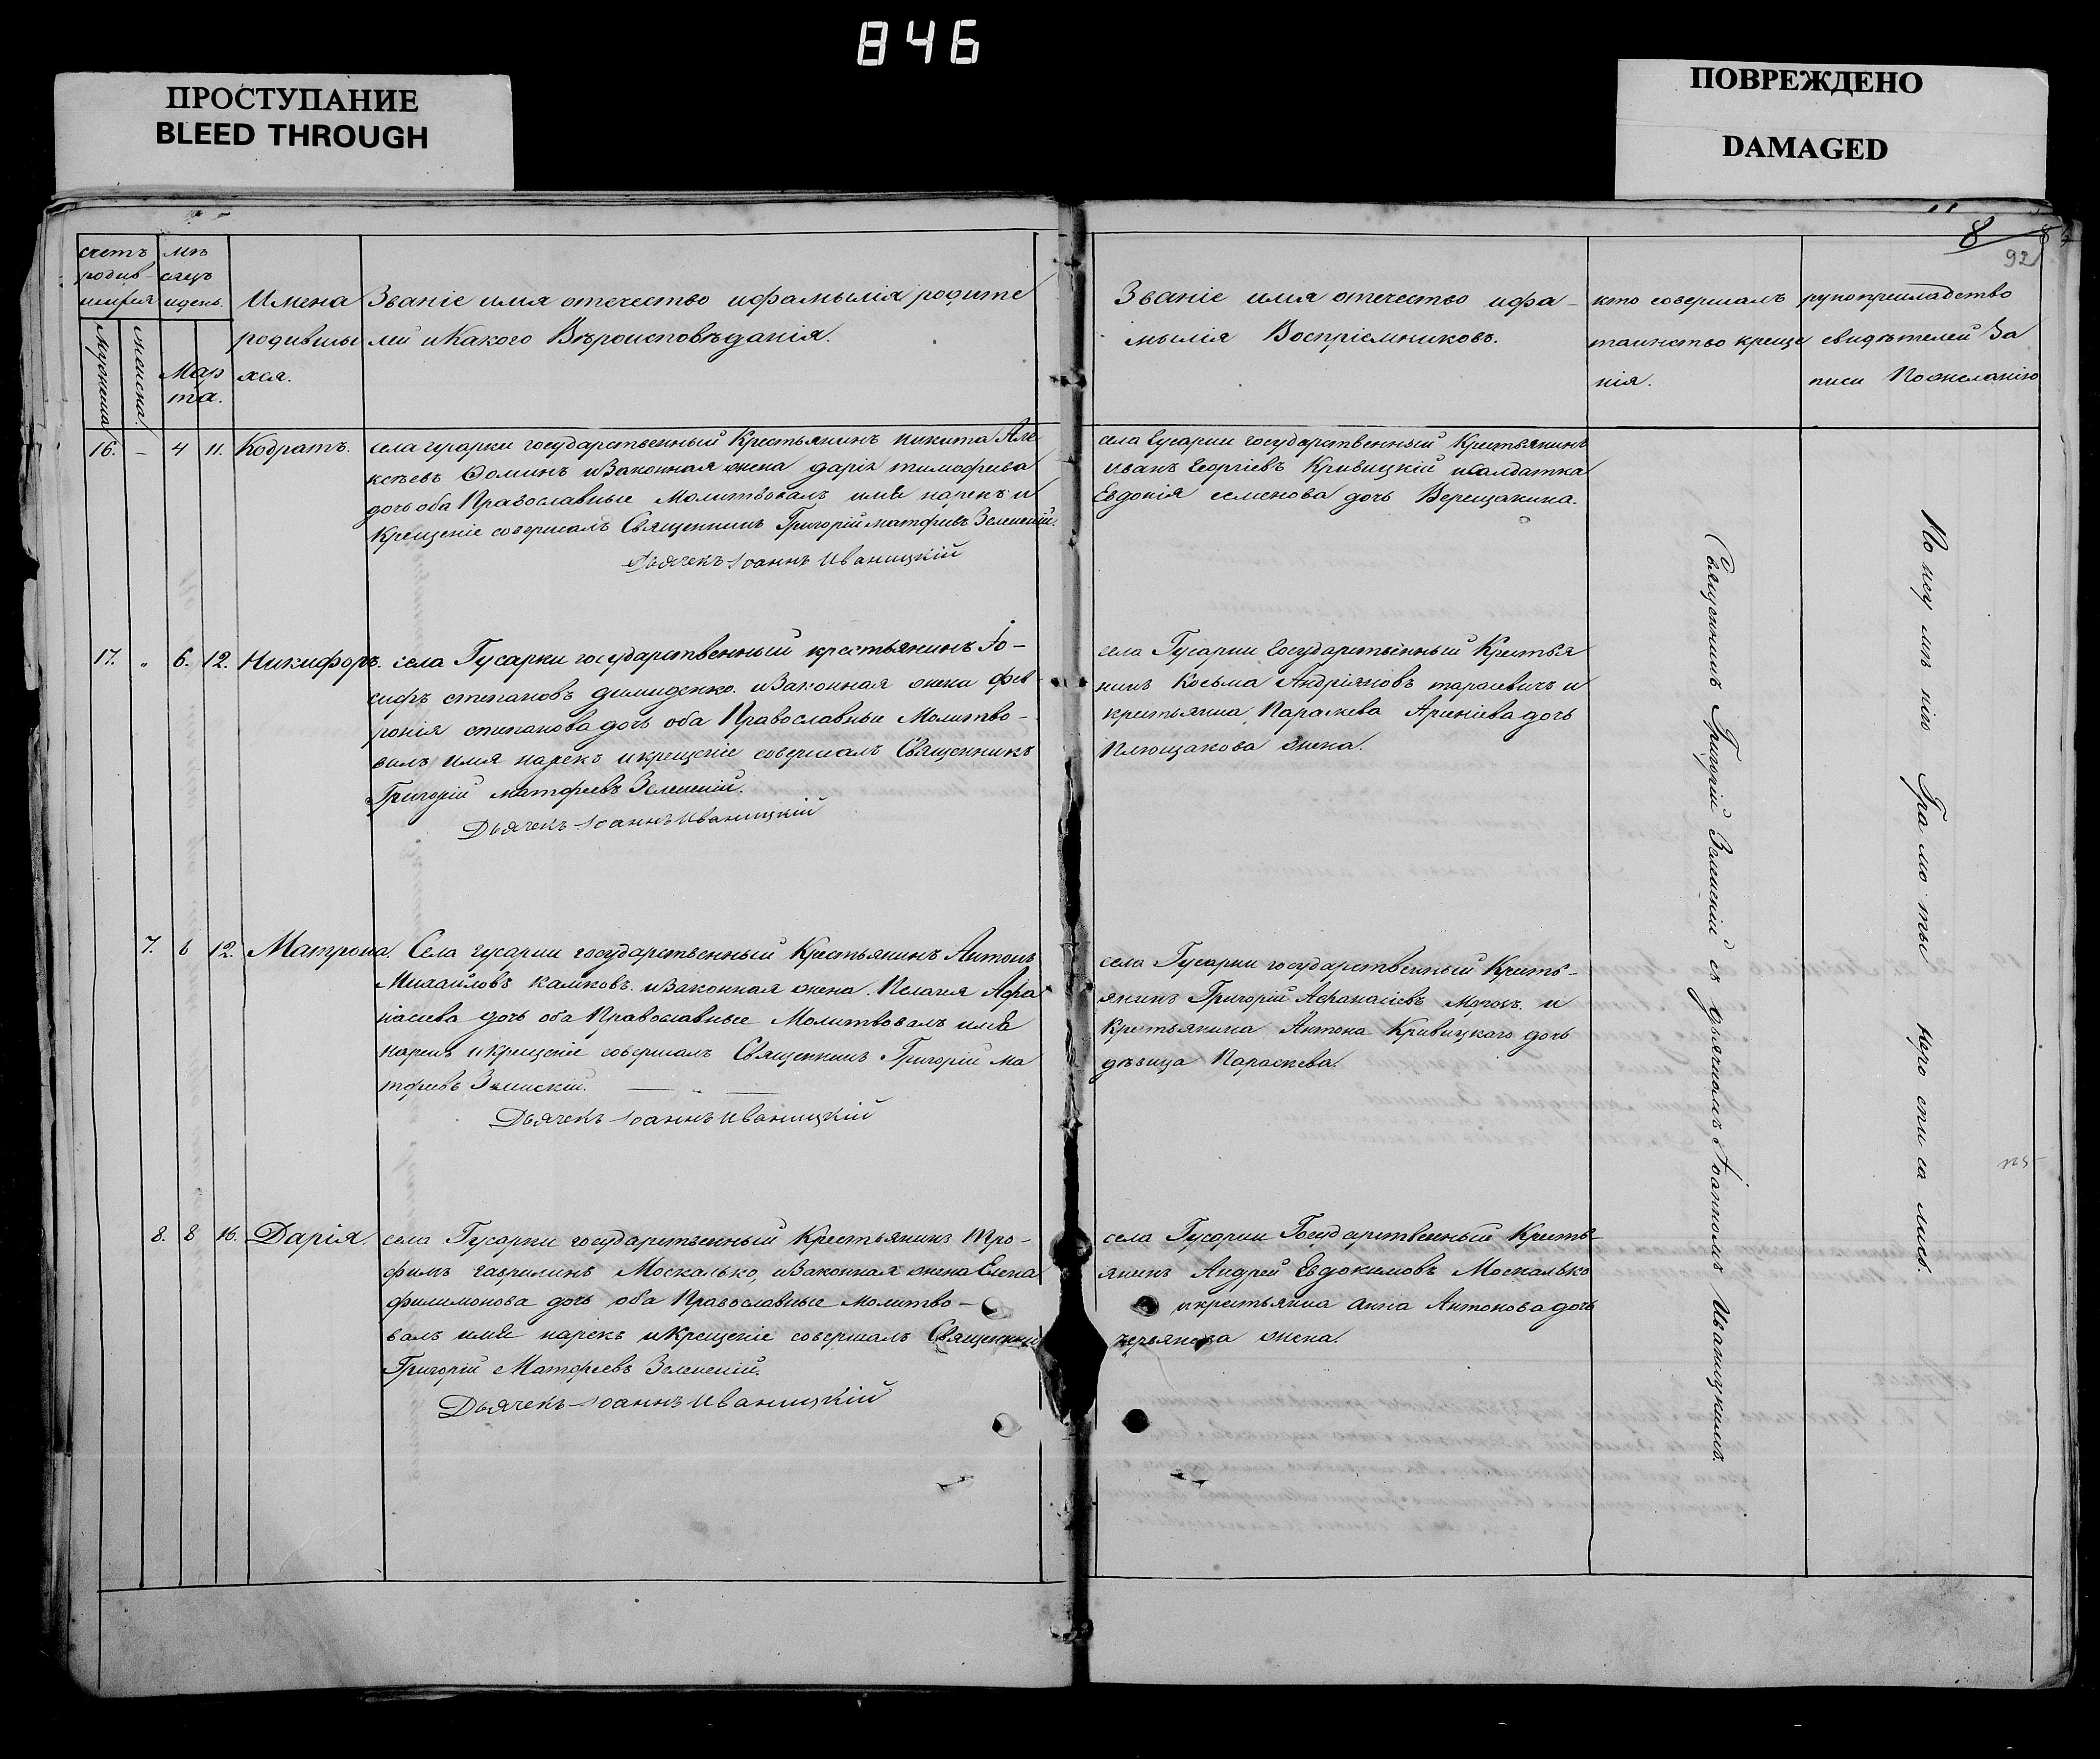 846
ПРОСТУПАНИЕ
BLEED THROUGH
ПОВРЕЖДЕНО
DAMAGED
8
92
счетъ
родив-
шихся
мужеска
женска.
мѣ
сяцъ
и день.
Мар
та.
Имена
родивши
хся.
Званіе имя отечество и фамылія родите
лей и Какого Вѣроисповѣданія.
Званіе имя отечество и фа-
мылія Воспріемниковъ.
кто совершалъ
таинство креще
нія.
рукоприкладство
свидѣтелей За
писи По желанію
16. – 4 11. Кодратъ.
села гусарки государственный Крестьянинъ Никита Але
ксѣевъ Ѳоминъ и Законная жена дарія тимофиева
дочь оба Православные Молитвовалъ имя нарекъ и
Крещеніе совершалъ Священникъ Григорій матфиевъ Зеленскій.
Дьячекъ Іоаннъ Иваницкій
села Гусарки государственный Крестьянинъ
Иванъ Георгіевъ Кривицкій и салдатка
Евдокія семенова дочь Верещакина.
17. „ 6. 12. Никифоръ.
села Гусарки государственный крестьянинъ Іо-
сифъ степановъ димиденко. и Законная жена фев-
ронія степанова дочь оба Православные Молитво-
валъ имя нарекъ и крещеніе совершалъ Священникъ
Григорій матфеевъ Зеленскій.
Дьячекъ Іоаннъ Иваницкій
села Гусарки Государственный Крестья
нинъ Косьма Андріяновъ тарасевичъ и
крестьянка Параскева Арсеніева дочь
Плющакова жена.
7. 6 12. Матрона.
Села гусарки государственный Крестьянинъ Антонъ
Михаиловъ Калиновъ. и Законная жена. Пелагея Афа
насиева дочь оба Православные Молитвовалъ имя
нарекъ и крещеніе совершалъ Священникъ Григорій ма
тфиевъ Зеленскій.
Дьячекъ Іоаннъ Иваницкій
села Гусарки государственный Кресть-
янинъ Григорій Афанасіевъ и
Крестьянина Антона Кривицкаго дочь
дѣвица Параскева.
8. 8 16. Дарія.
села Гусарки государственный Крестьянинъ Тро-
фимъ гаврилинъ Москалько, и Законная жена Елена
филимонова дочь оба Православные Молитво-
валъ имя нарекъ и Крещеніе совершалъ Священник
Григорій Матфеевъ Зеленскій.
Дьячекъ Іоаннъ Иваницкій
села Гусарки Государственный Кресть-
янинъ Андрей Евдокимовъ Москалько
и крестьянка Анна Антонова дочь
жена.
Священникъ Григорій Зеленскій съ дьячкомъ Іоанномъ Иваницкимъ.
По неумѣнію Грамоты неросписались.